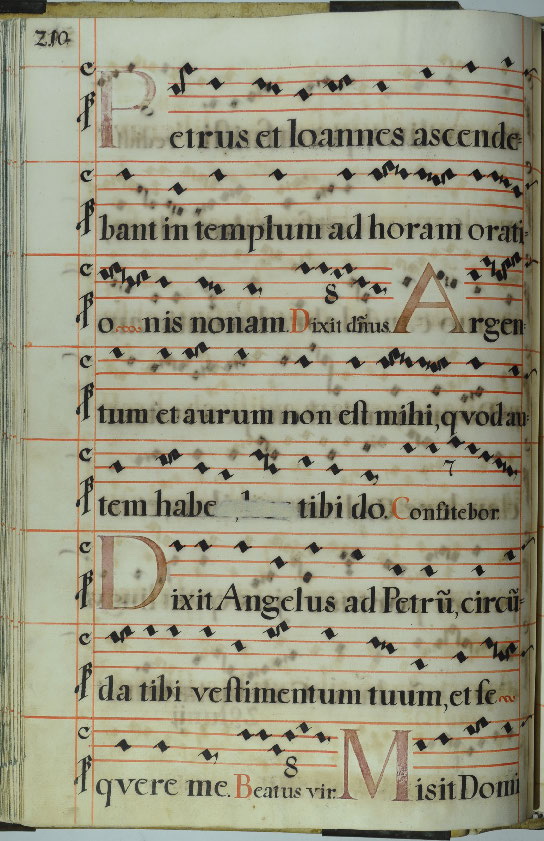 210
Petrus et Ioannes ascende-
bant in templum ad horam orati-
o nis nonam. Dixit dñus. 8 Argen-
tum et aurum non est mihi, qvod au-
tem habe tibi do. Confitebor. 7
Dixit Angelus ad Petrũ, circũ-
da tibi vestimentum tuum, et se
qvere me. Beatus vir. 8 Misit Domi